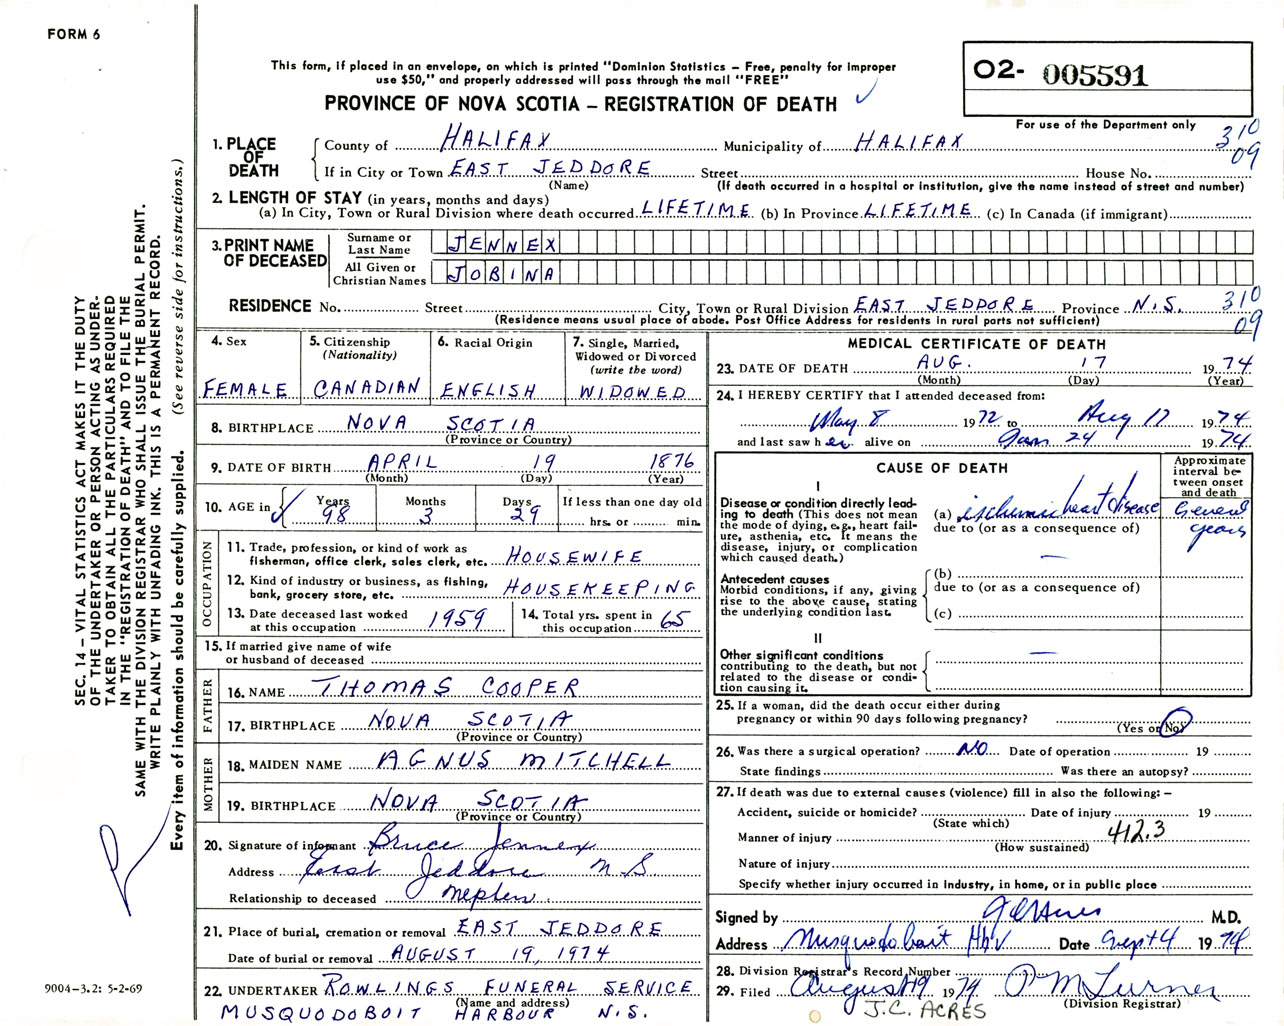 FORM 6
This form, if placed in an envelope, on which is printed "Dominion Statistics – Free, penalty for improper
use $50," and properly addressed will pass through the mail "FREE"
PROVINCE OF NOVA SCOTIA – REGISTRATION OF DEATH
O2- 005591
For use of the Department only
310
09
1. PLACE OF DEATH
County of HALIFAX Municipality of HALIFAX
If in City or Town EAST JEDDORE Street House No.
(Name) (If death occurred in a hospital or institution, give the name instead of street and number)
2. LENGTH OF STAY (in years, months and days)
(a) In City, Town or Rural Division where death occurred LIFETIME (b) In Province LIFETIME (c) In Canada (if immigrant)
3. PRINT NAME OF DECEASED
Surname or Last Name JENNEX
All Given or Christian Names JOBINA
RESIDENCE No. Street City, Town or Rural Division EAST JEDDORE Province N.S. 310
(Residence means usual place of abode. Post Office Address for residents in rural parts not sufficient) 09
4. Sex FEMALE
5. Citizenship (Nationality) CANADIAN
6. Racial Origin ENGLISH
7. Single, Married, Widowed or Divorced (write the word) WIDOWED
8. BIRTHPLACE NOVA SCOTIA
(Province or Country)
9. DATE OF BIRTH APRIL 19 1876
(Month) (Day) (Year)
10. AGE in Years 98 Months 3 Days 29 If less than one day old
hrs. or min.
OCCUPATION
11. Trade, profession, or kind of work as
fisherman, office clerk, sales clerk, etc. HOUSEWIFE
12. Kind of industry or business, as fishing,
bank, grocery store, etc. HOUSEKEEPING
13. Date deceased last worked
at this occupation 1959
14. Total yrs. spent in
this occupation 65
15. If married give name of wife
or husband of deceased
FATHER
16. NAME THOMAS COOPER
17. BIRTHPLACE NOVA SCOTIA
(Province or Country)
MOTHER
18. MAIDEN NAME AGNUS MITCHELL
19. BIRTHPLACE NOVA SCOTIA
(Province or Country)
20. Signature of informant Bruce Jennex
Address East Jeddore N S
Relationship to deceased Nephew
21. Place of burial, cremation or removal EAST JEDDORE
Date of burial or removal AUGUST 19, 1974
22. UNDERTAKER ROWLINGS FUNERAL SERVICE
(Name and address)
MUSQUODOBOIT HARBOUR N.S.
MEDICAL CERTIFICATE OF DEATH
23. DATE OF DEATH AUG. 17 1974
(Month) (Day) (Year)
24. I HEREBY CERTIFY that I attended deceased from:
May 8 1972 to Aug 17 1974
and last saw her alive on Jan 24 1974
CAUSE OF DEATH
Approximate interval be-tween onset and death
I
Disease or condition directly lead-
ing to death (This does not mean
the mode of dying, e.g., heart fail-
ure, asthenia, etc. It means the
disease, injury, or complication
which caused death.)
(a) ischemic heart disease
due to (or as a consequence of)
several years
Antecedent causes
Morbid conditions, if any, giving
rise to the above cause, stating
the underlying condition last.
—
(b)
due to (or as a consequence of)
(c)
II
Other significant conditions
contributing to the death, but not
related to the disease or condi-
tion causing it.
—
25. If a woman, did the death occur either during
pregnancy or within 90 days following pregnancy?
(Yes or No)
26. Was there a surgical operation? NO Date of operation 19
State findings Was there an autopsy?
27. If death was due to external causes (violence) fill in also the following: –
Accident, suicide or homicide? Date of injury 19
(State which)
Manner of injury 412.3
(How sustained)
Nature of injury
Specify whether injury occurred in Industry, in home, or in public place
Signed by M.D.
Address Musquodoboit Hbr Date Sept 4 1974
28. Division Registrar's Record Number
29. Filed August 19 1974 P M Turner
(Division Registrar)
J.C. ACRES
SEC. 14 – VITAL STATISTICS ACT MAKES IT THE DUTY
OF THE UNDERTAKER OR PERSON ACTING AS UNDER-
TAKER TO OBTAIN ALL THE PARTICULARS REQUIRED
IN THE "REGISTRATION OF DEATH" AND TO FILE THE
SAME WITH THE DIVISION REGISTRAR WHO SHALL ISSUE THE BURIAL PERMIT.
WRITE PLAINLY WITH UNFADING INK. THIS IS A PERMANENT RECORD.
Every item of information should be carefully supplied. (See reverse side for instructions.)
9004-3.2: 5-2-69